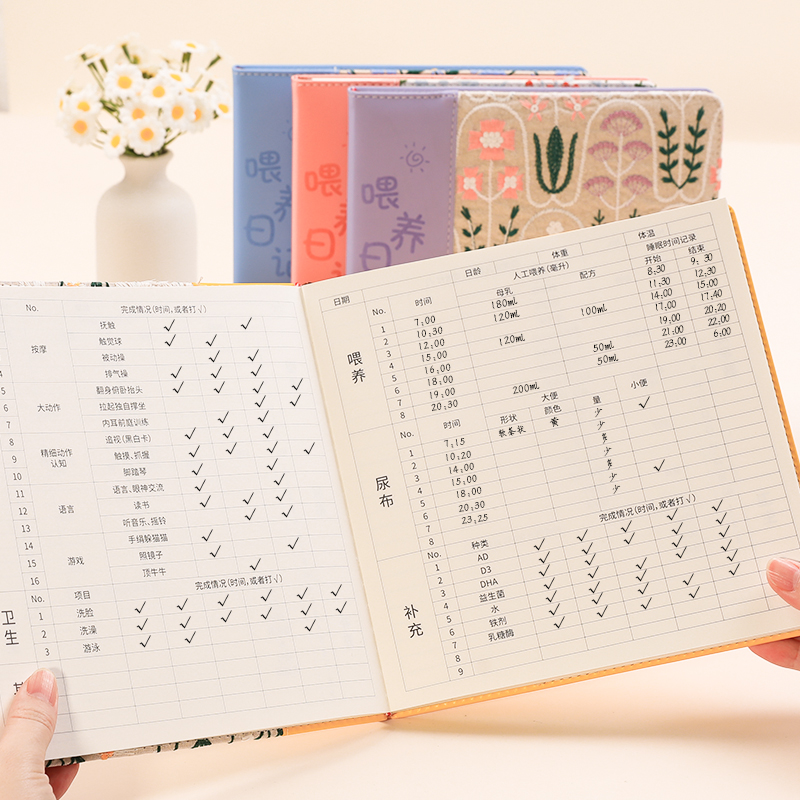 喂养日记
喂养日
喂养日
No. 完成情况(时间,或者打√)
按摩
抚触 ✓ ✓
触觉球 ✓ ✓
被动操 ✓ ✓
4 排气操 ✓ ✓ ✓
5 大动作 翻身俯卧抬头 ✓ ✓ ✓ ✓
6 拉起独自撑坐 ✓ ✓
7 内耳前庭训练 ✓ ✓
8 精细动作认知 追视(黑白卡) ✓ ✓ ✓
9 触摸、抓握 ✓ ✓ ✓ ✓
10 脚踏琴 ✓ ✓
11 语言 语言、眼神交流 ✓ ✓
12 读书 ✓ ✓ ✓
13 听音乐、摇铃 ✓ ✓
14 游戏 手绢躲猫猫 ✓ ✓
15 照镜子 ✓
16 顶牛牛 ✓
卫生
No. 项目 完成情况(时间,或者打√)
1 洗脸 ✓ ✓ ✓ ✓ ✓ ✓
2 洗澡 ✓ ✓ ✓ ✓ ✓ ✓
3 游泳 ✓ ✓ ✓
日期 日龄 体重 体温
喂养
No. 时间 人工喂养(毫升) 睡眠时间记录
母乳 配方 开始 结束
1 7:00 180ml 8:30 9:30
2 10:30 120ml 100ml 11:30 12:30
3 12:00 14:00 15:00
4 15:00 120ml 17:00 17:40
5 16:00 19:00 20:20
6 18:00 50ml 21:00 22:00
7 19:00 50ml 23:00 6:00
8 20:30 200ml
尿布
No. 时间 大便 小便
形状 颜色 量
1 7:15 黄 少 ✓
2 10:20 多
3 14:00 少
4 15:00 多
5 18:00 少 ✓
6 20:30 少
7 23:25
8
补充
No. 种类 完成情况(时间,或者打√)
1 AD ✓ ✓ ✓ ✓ ✓
2 D3 ✓ ✓ ✓ ✓ ✓
3 DHA ✓ ✓ ✓ ✓ ✓
4 益生菌 ✓ ✓ ✓ ✓ ✓
5 水 ✓ ✓ ✓ ✓ ✓
6 铁剂 ✓ ✓ ✓ ✓
7 乳糖酶 ✓
8
9